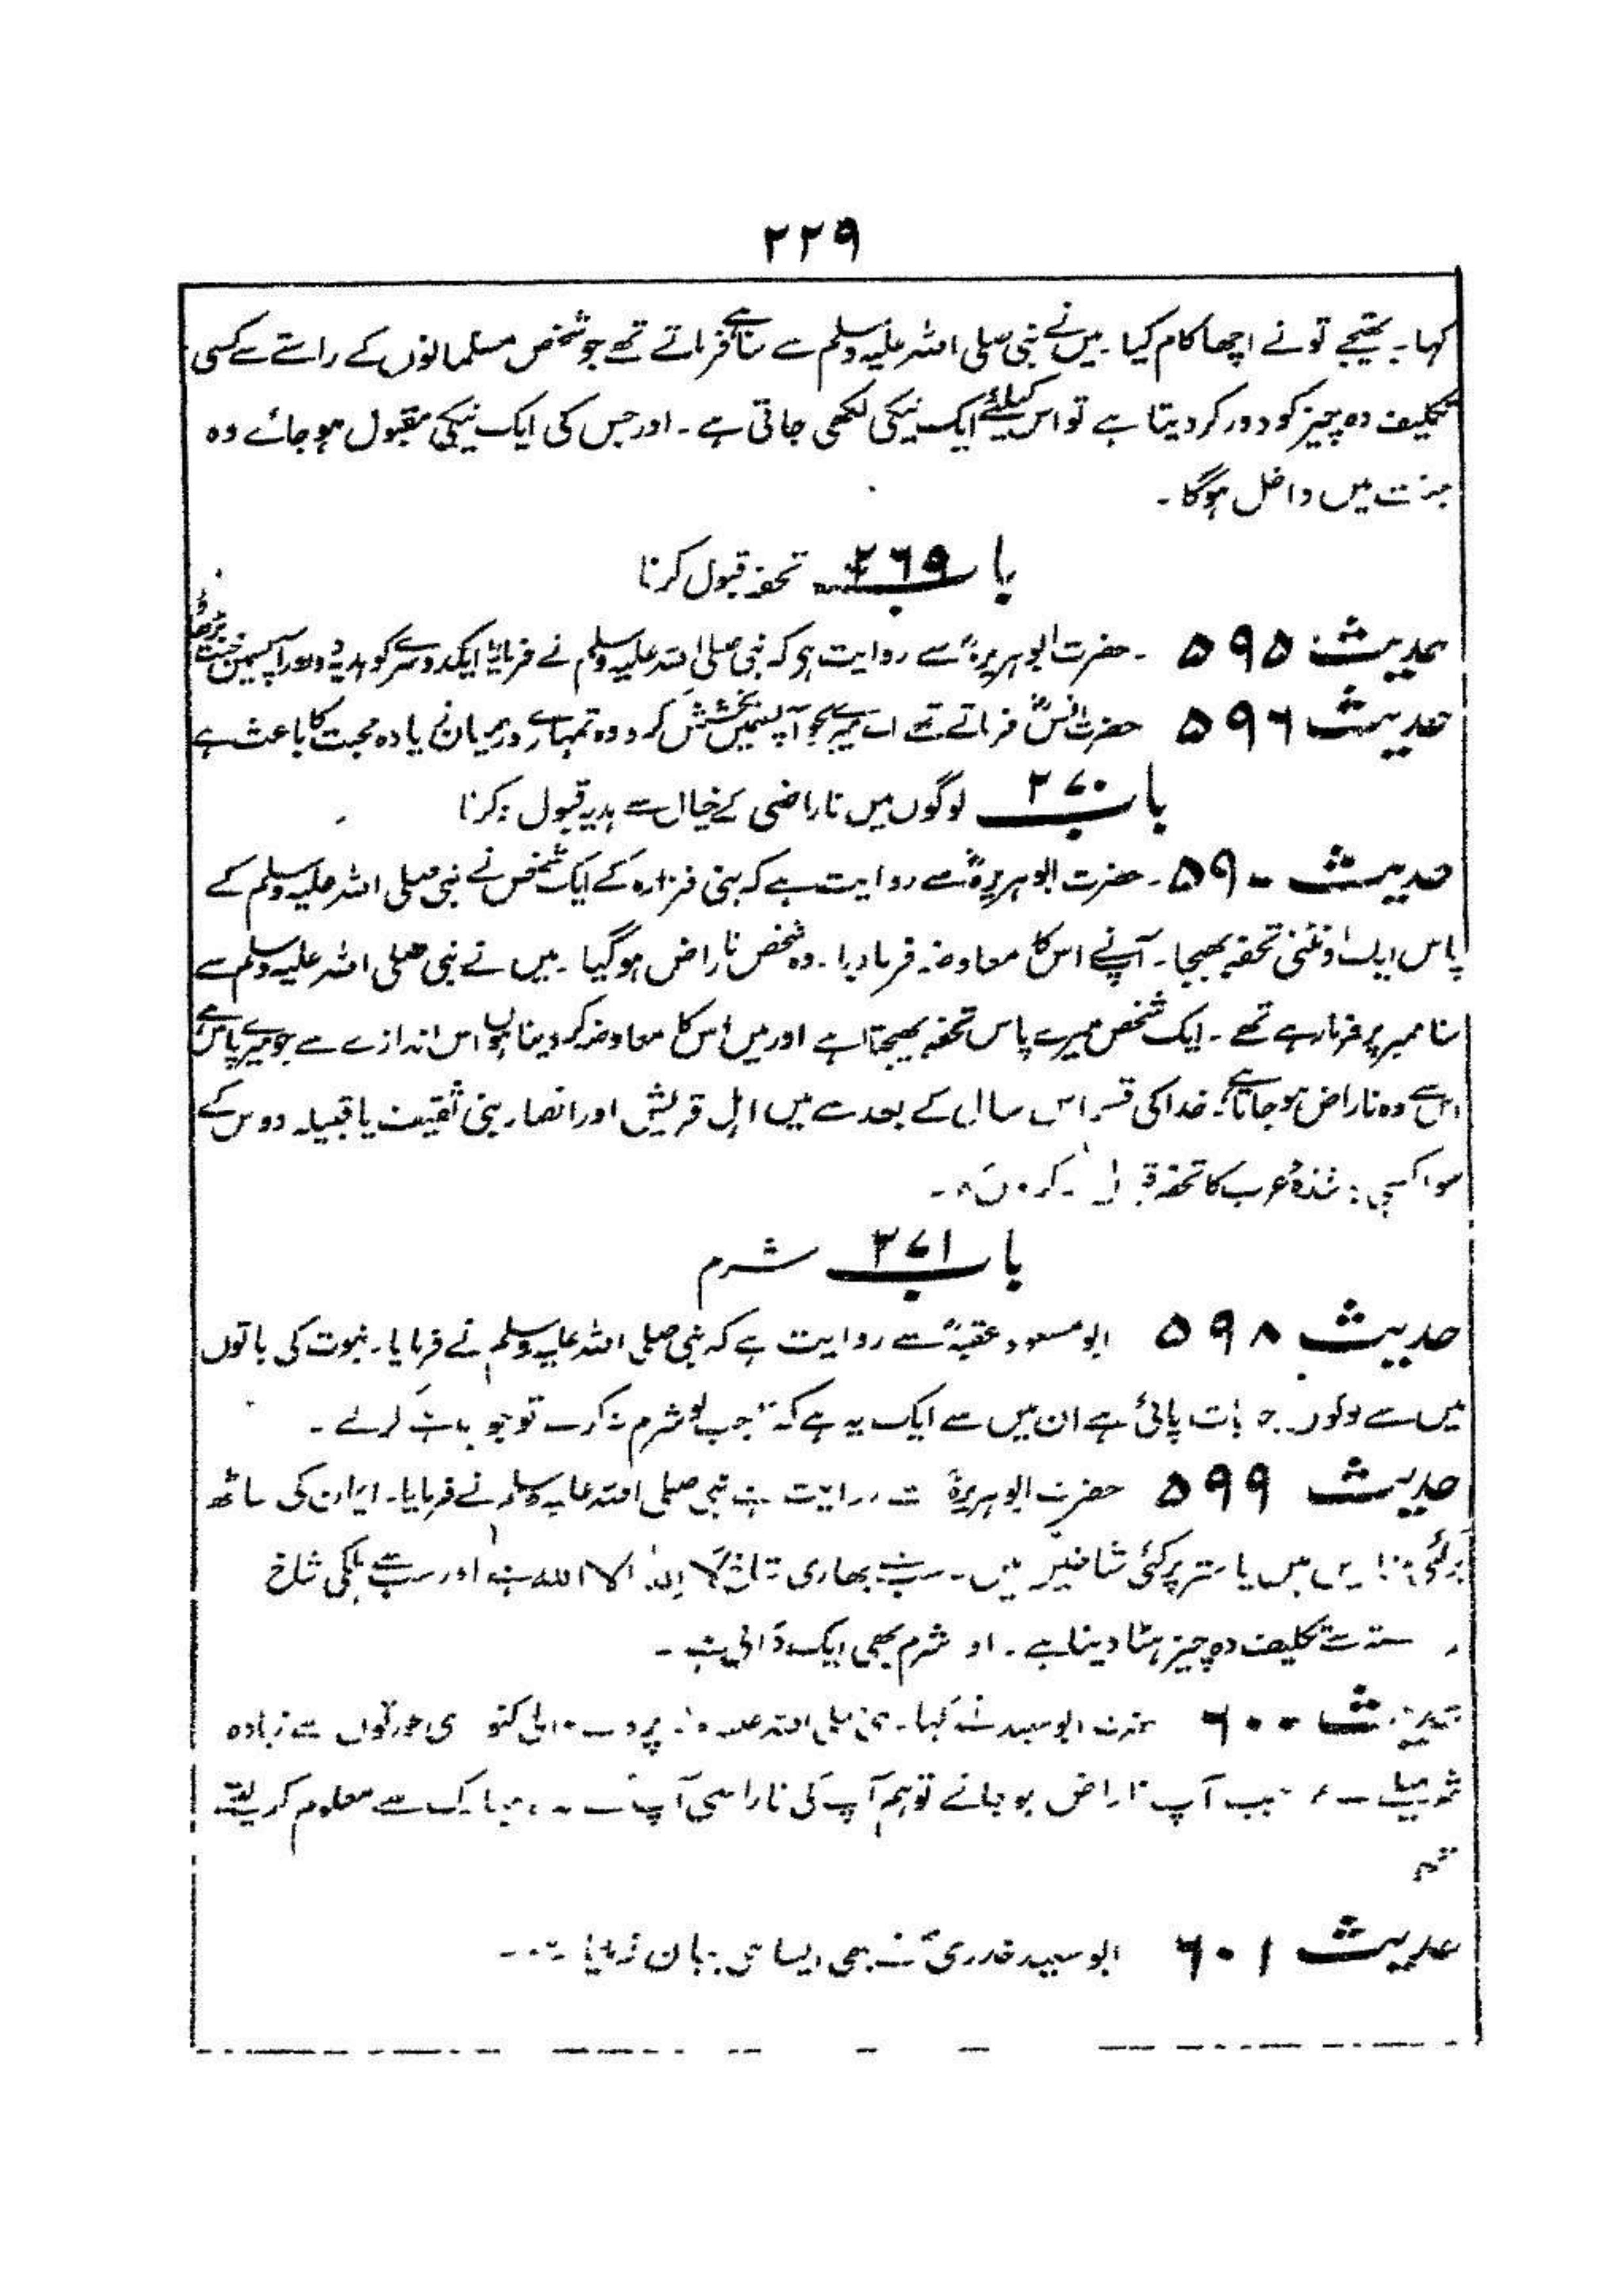 ۲۲۹
کہا۔ بھتیجے تونے اچھا کام کیا۔ میں نے نبی صلی اللہ علیہ وسلم سے سنا ہے فرماتے تھے جو شخص مسلمانوں کے راستے سے کسی
تکلیف دہ چیز کو دور کر دیتا ہے تو اس کیلئے ایک نیکی لکھی جاتی ہے۔ اور جس کی ایک نیکی مقبول ہو جائے وہ
جنت میں داخل ہوگا۔
باب ۲۶۹ تحفہ قبول کرنا
حدیث ۵۹۵ ۔ حضرت ابوہریرہؓ سے روایت ہے کہ نبی صلی اللہ علیہ وسلم نے فرمایا ایکدوسرے کو ہدیہ دو اور آپسمیں محبت بڑھاؤ
حدیث ۵۹۶ حضرت انسؓ فرماتے تھے اے میرے بچو آپسمیں بخشش کرو وہ تمہارے درمیان زیادہ محبت کا باعث ہے
باب ۲۷۰ لوگوں میں ناراضی کے خیال سے ہدیہ قبول نہ کرنا
حدیث ۵۹ ۔ حضرت ابوہریرہؓ سے روایت ہے کہ بنی فزارہ کے ایک شخص نے نبی صلی اللہ علیہ وسلم کے
پاس ایک اونٹنی تحفہ بھیجا۔ آپنے اس کا معاوضہ فرما دیا۔ وہ شخص ناراض ہوگیا۔ میں نے نبی صلی اللہ علیہ وسلم سے
سنا ممبر پر فرما رہے تھے۔ ایک شخص میرے پاس تحفہ بھیجتا ہے اور میں اس کا معاوضہ کر دیتا ہوں اس اندازے سے جو میرے پاس ہے
اس سے وہ ناراض ہو جاتا ہے۔ خدا کی قسم اس سال کے بعد سے میں اہل قریش اور انصار بنی ثقیف یا قبیلہ دوس کے
سوا کسی عرب کا تحفہ
باب ۲۷۱ شرم
حدیث ۵۹۸ ابو مسعود عقبہؓ سے روایت ہے کہ نبی صلی اللہ علیہ وسلم نے فرمایا۔ نبوت کی باتوں
میں سے لوگوں بات پائی ہے ان میں سے ایک یہ ہے کہ "جب تو شرم نہ کرے تو جو چاہے کرلے۔
حدیث ۵۹۹ حضرت ابوہریرہؓ سے روایت ہے نبی صلی اللہ علیہ وسلم نے فرمایا۔ ایمان کی ساٹھ
پر کئی میں یا ستر پر کئی شاخیں ہیں۔ سب سے بھاری شاخ لا الہ الا اللہ ہے اور سب سے ہلکی شاخ
سے تکلیف دہ چیز ہٹا دینا ہے۔ اور شرم بھی ایک ڈالی ہے۔
حدیث ۶۰۰ حضرت ابو سعید نے کہا۔ نبی صلی اللہ علیہ پردے والی عورتوں سے زیادہ
شرمیلے جب آپ ناراض ہو جاتے تو ہم آپ کی ناراضی آپ مبارک سے معلوم کر لیتے
تھے
حدیث ۶۰۱ ابو سعید خدریؓ نے بھی ایسا ہی بیان فرمایا